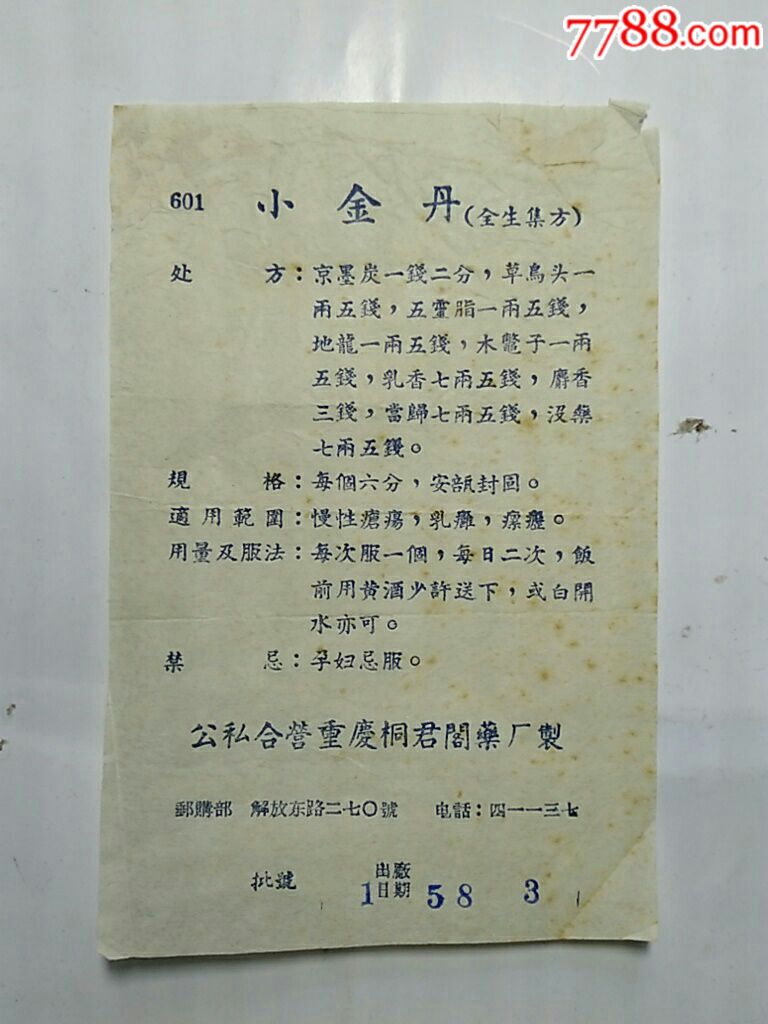 7788.com
601 小金丹(全生集方)
处方：京墨炭一錢二分，草烏头一
兩五錢，五靈脂一兩五錢，
地龍一兩五錢，木鼈子一兩
五錢，乳香七兩五錢，麝香
三錢，當歸七兩五錢，沒藥
七兩五錢。
規格：每個六分，安瓿封固。
適用範圍：慢性瘡瘍，乳癰，瘰癧。
用量及服法：每次服一個，每日二次，飯
前用黄酒少許送下，或白開
水亦可。
禁忌：孕妇忌服。
公私合營重慶桐君閣藥厂製
郵購部 解放东路二七〇號 电話：四一一三七
批號 1 出廠日期 58 3